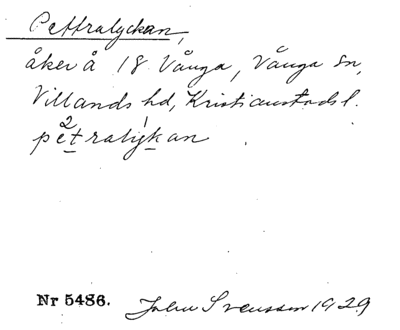 Pettralyckan,
åker å 18 Vånga, Vånga sn,
Villands hd, Kristianstads l.
pe²tralyˈkan
Nr 5486. John Svensson 1929